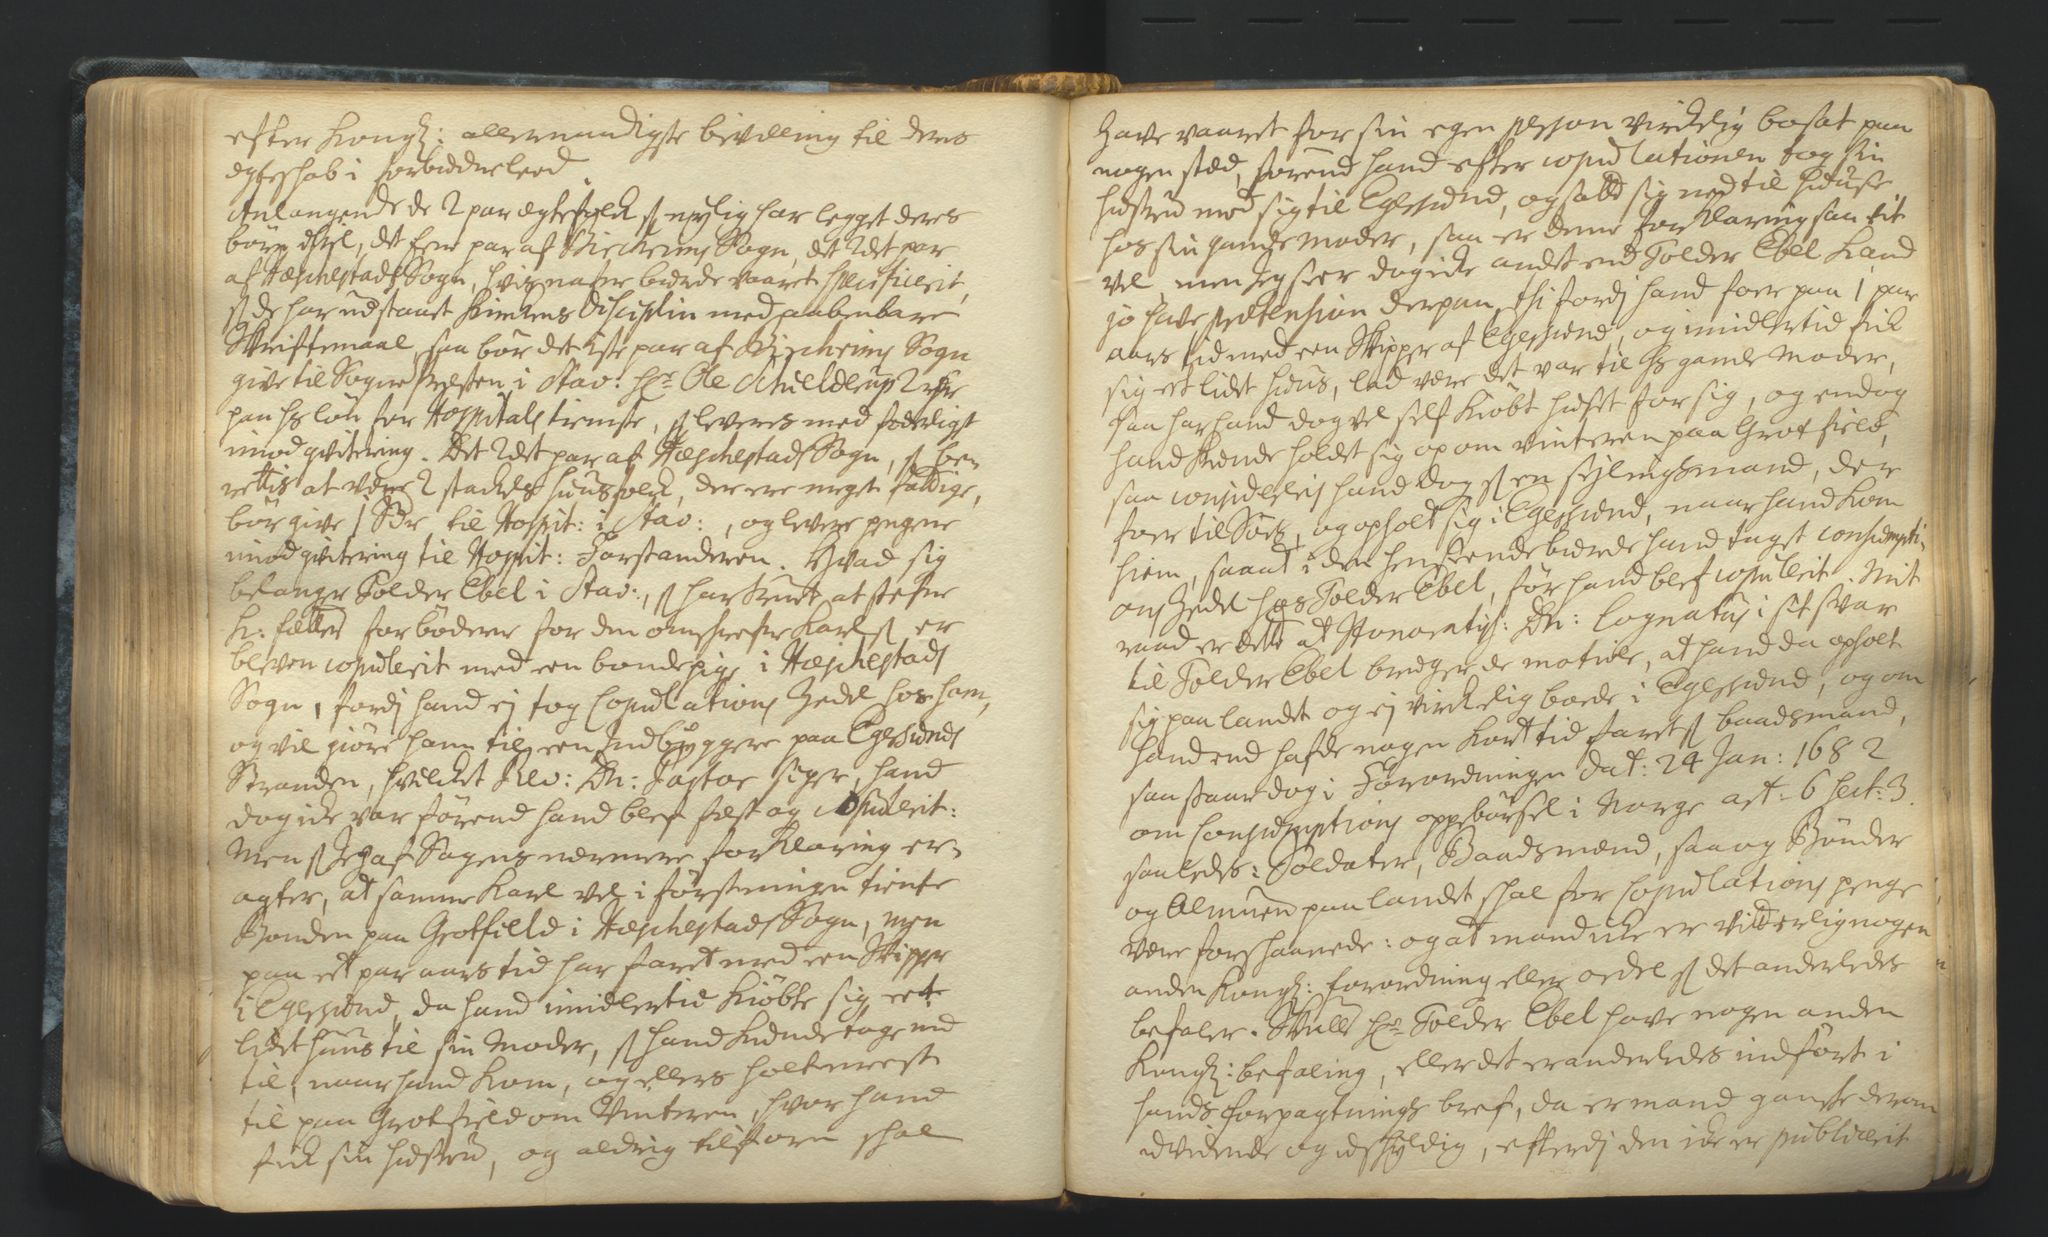 efter Kongl: allernaadigste bevilling til deres
ægteskab i forbudne leed.
Anlangende de 2 par ægtefolck s nylig har legget deres
børn ihiel, det eene par af Birckrems Sogn, det 2det par
af Hæskestads Sogn, hvis nafne burde vaaret specificerit,
s de har udstaaet Kirckens Disciplin med aabenbare
Skriftemaal, saa bør det 1ste par af Birckrems Sogn
give til Sogne Præsten i Stav: Hr Ole Schielderup 2 rdr
paa hs løn for Hospitals tieniste, s leveres med forderligst
imod qvitering. Det 2det par af Hæskestads Sogn, s be-
rettis at være 2 stackels huusfolck, der ere meget fattige,
bør give 1 Rdr til Hospit: i Stav:, og levere pengene
imod qvitering til Hospit: Forstanderen. Hvad sig
belanger Tolder Ebel i Stav:, s har truet at stefne
K: fætter for bøderne for den omskrefne Karl s er
bleven copulerit med een bondepige i Hæskestads
Sogn, fordj hand ej tog Copulations Zedel hos ham,
og vil giøre ham til een Indbyggere paa Egersunds
Stranden, hvilcket Rev: Dn: Pastor siger, hand
dog icke var førend hand blef fæst og copulerit:
Men s Jeg af Sagens nærmere forklaring er-
agter, at samme Karl vel i førstningen tiente
Bonden paa Grotfield i Hæskestads Sogn, men
paa et par aars tid har faret med een Skipper
i Egersund, da hand imidlertid kiøbte sig eet
lidet huus til sin Moder, s hand kunde tage ind
til, naar hand kom, og ellers holt meest
til paa Grotfield om Vinteren, hvor hand
fick sin hustru, og aldrig tilforn skal
have vaaret for sin egen person virkelig bosat paa
nogen stæd, førend hand efter copulationen tog sin
hustru med sig til Egersund, og satte sig ned til huuse
hos sin gamle Moder, saa er denne forklaring saa vit
vel men Jeg seer dog icke andet end Tolder Ebel kand
jo have prætension derpaa, thi fordj hand foer paa 1 par
aars tid med een Skipper af Egersund, og imidlertid fick
sig et lidet huus, lad være det var til hs gamle Moder,
saa har hand dog vel self kiøbt huset for sig, og endog
hand kunde holdet sig op om vinteren paa Grotfield,
saa considereris hand dog s en seylingsmand, der
foer til Søes, og opholt sig i Egersund, naar hand kom
hiem, saa at i den henseende burde hand taget consumpti-
ons Zedel hos Tolder Ebel, før hand blef copulerit. Mit
raad er dette at Honoratiss: Dn: Cognatus i sit svar
til Tolder Ebel bruger de motiver, at hand da opholt
sig paa landet og ej virckelig boede i Egersund, og om
hand end hafde nogen kort tid faret s baadsmand,
saa staar dog i Forordningen dat: 24 Jan: 1682
om Consumptions oppebørsel i Norge art: 6 sect: 3.
saaledes: Soldater, Baadsmænd, saa og Bønder
og Almuen paa landet skal for Copulations penge
være forskaanede: og at mand icke er vitterlig nogen
anden Kongl: forordning eller ordel s det anderledes
befaler. Skulle Hr Tolder Ebel have nogen anden
Kongl: befaling, eller det er anderledes indført i
hands forpagtnings bref, da er mand ganske derom
uvidende og uskyldig, efterdj den icke er publicerit